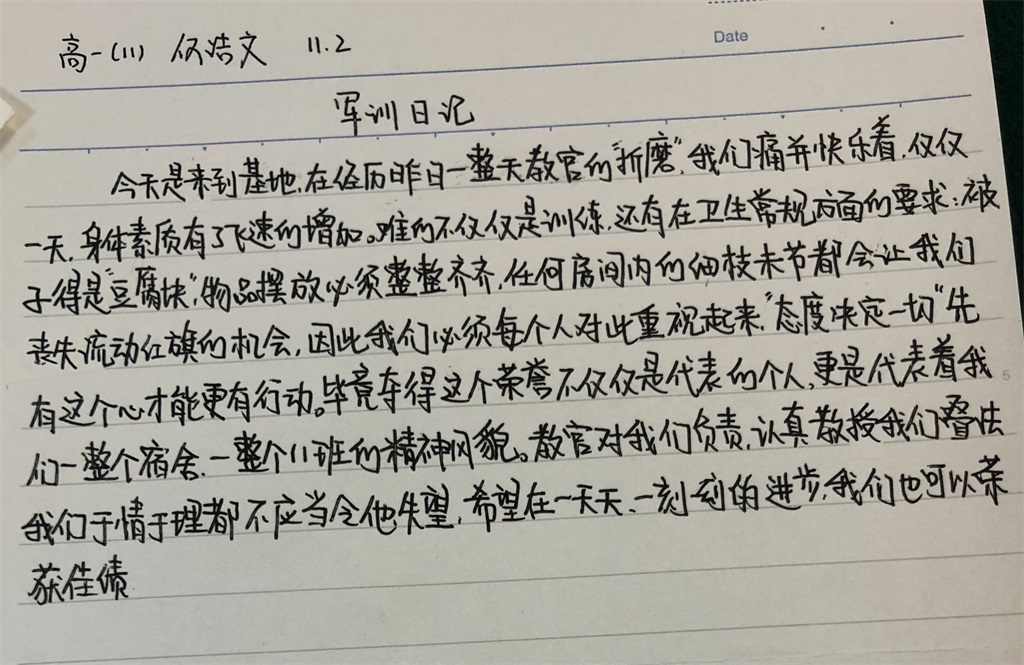 Date
高一(11) 何浩文 11.2
军训日记
今天是来到基地,在经历昨日一整天教官的"折磨",我们痛并快乐着,仅仅
一天,身体素质有了飞速的增加。难的不仅仅是训练,还有在卫生常规方面的要求:被
子得是"豆腐块",物品摆放必须整整齐齐,任何房间内的细枝末节都会让我们
丧失流动红旗的机会,因此我们必须每个人对此重视起来,"态度决定一切"先
有这个心才能更有行动。毕竟夺得这个荣誉不仅仅是代表的个人,更是代表着我
们一整个宿舍、一整个11班的精神风貌。教官对我们负责,认真教授我们叠法
我们于情于理都不应当令他失望,希望在一天天、一刻刻的进步,我们也可以荣
获佳绩
5